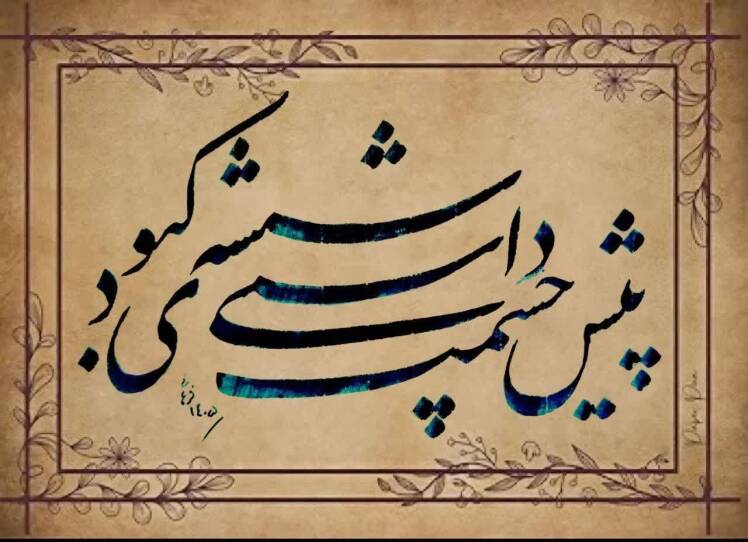 پیش چشمت داشتی شیشه‌ی کبود
۱۴۰۵